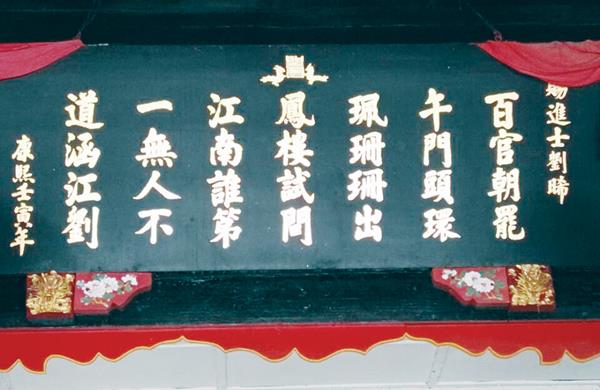 賜進士劉晞
百官朝罷
午門頭環
珮珊珊出
鳳樓試問
江南誰第
一無人不
道涵江劉
康熙壬寅年